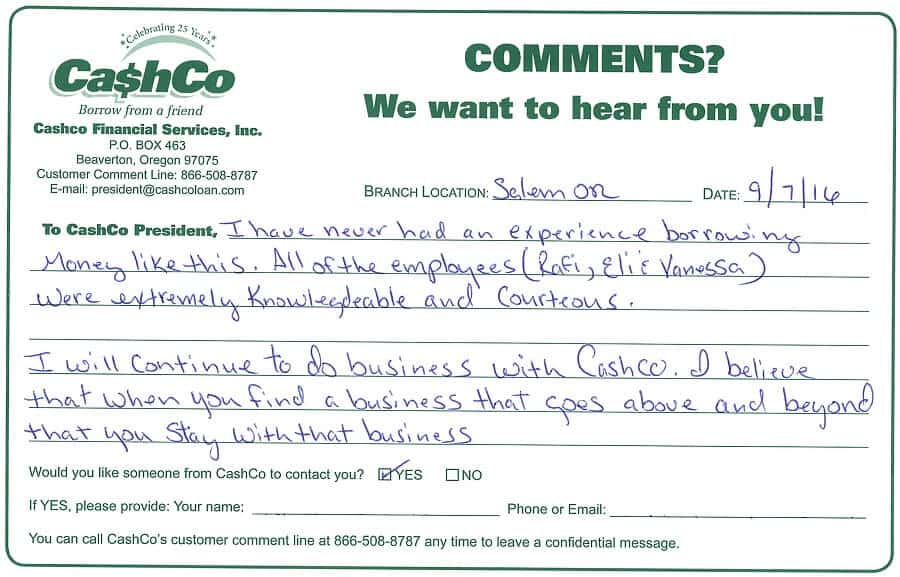 Celebrating 25 Years
Ca$hCo
Borrow from a friend
Cashco Financial Services, Inc.
P.O. BOX 463
Beaverton, Oregon 97075
Customer Comment Line: 866-508-8787
E-mail: president@cashcoloan.com
COMMENTS?
We want to hear from you!
BRANCH LOCATION: Salem OR DATE: 9/7/16
To CashCo President, I have never had an experience borrowing
Money like this. All of the employees (Rafi, Eli & Vanessa)
were extremely Knowlegdeable and Courteous.
I will continue to do business with Cashco. I believe
that when you find a business that goes above and beyond
that you Stay with that business
Would you like someone from CashCo to contact you? YES NO
If YES, please provide: Your name: Phone or Email:
You can call CashCo's customer comment line at 866-508-8787 any time to leave a confidential message.